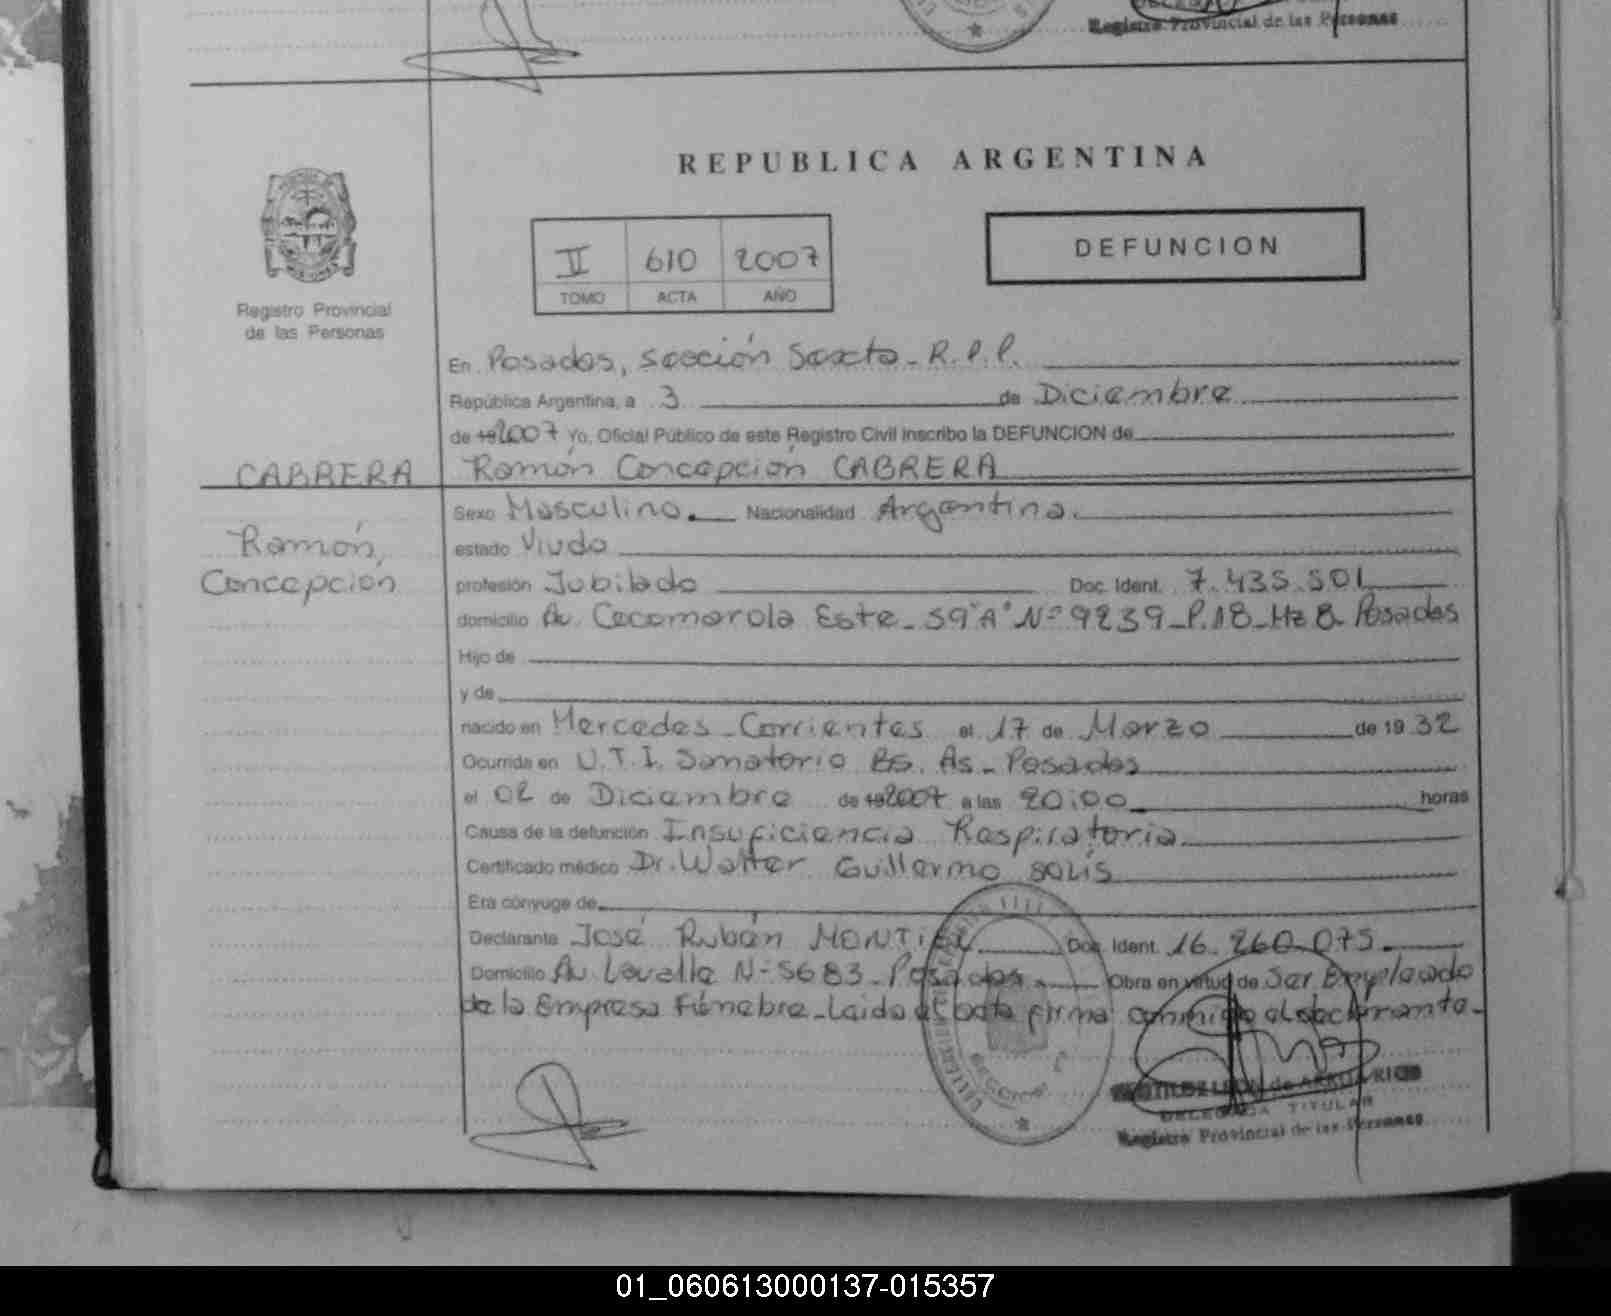 Registro Provincial de las Personas
REPUBLICA ARGENTINA
II 610 2007
TOMO ACTA AÑO
DEFUNCION
Registro Provincial
de las Personas
En Posadas, sección Sexta - R.P.P.
República Argentina, a 3 de Diciembre
de 19 2007 Yo, Oficial Público de este Registro Civil inscribo la DEFUNCION de
CABRERA
Ramón Concepción CABRERA
Ramón,
Concepción
Sexo Masculino. Nacionalidad Argentina.
estado Viudo
profesión Jubilado Doc. Ident. 7.435.501
domicilio Av. Cocomarola Este - 59"A" Nº 9239 - P.18 - Mz 8 - Posadas
Hijo de
y de
nacido en Mercedes - Corrientes el 17 de Marzo de 19 32
Ocurrida en U.T.I. Sanatorio Bs. As - Posadas
el 02 de Diciembre de 19 2007 a las 20:00 horas
Causa de la defunción Insuficiencia Respiratoria
Certificado médico Dr. Walter Guillermo SOLIS
Era cónyuge de
Declarante José Rubén MONTIEL Doc. Ident. 16.260.075.
Domicilio Av. Lavalle Nº 5683 - Posadas. Obra en virtud de Ser Empleado
de la Empresa Fúnebre - Leida el acta firma conmigo el declarante -
DELEGADA TITULAR
Registro Provincial de las Personas
01_060613000137-015357